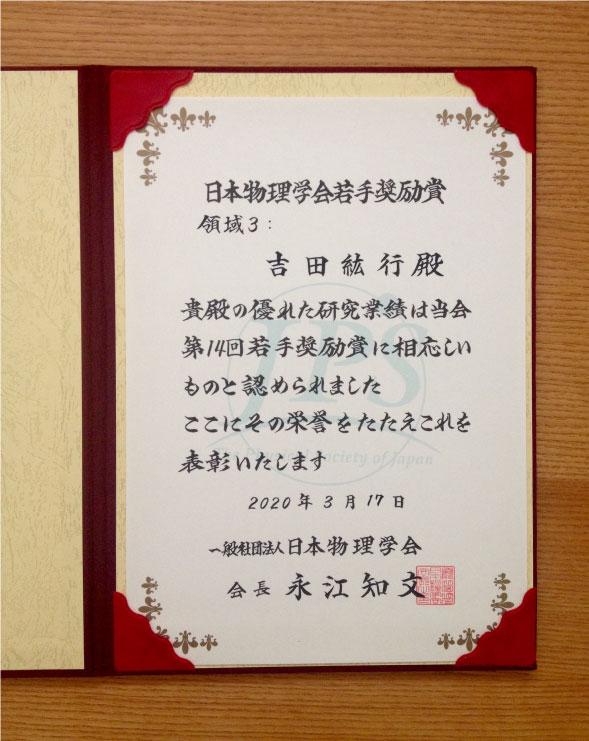 日本物理学会若手奨励賞
領域3:
吉田紘行殿
貴殿の優れた研究業績は当会
第14回若手奨励賞に相応しい
ものと認められました
ここにその栄誉をたたえこれを
表彰いたします
JPS
The Physical Society of Japan
2020年3月17日
一般社団法人日本物理学会
会長 永江知文